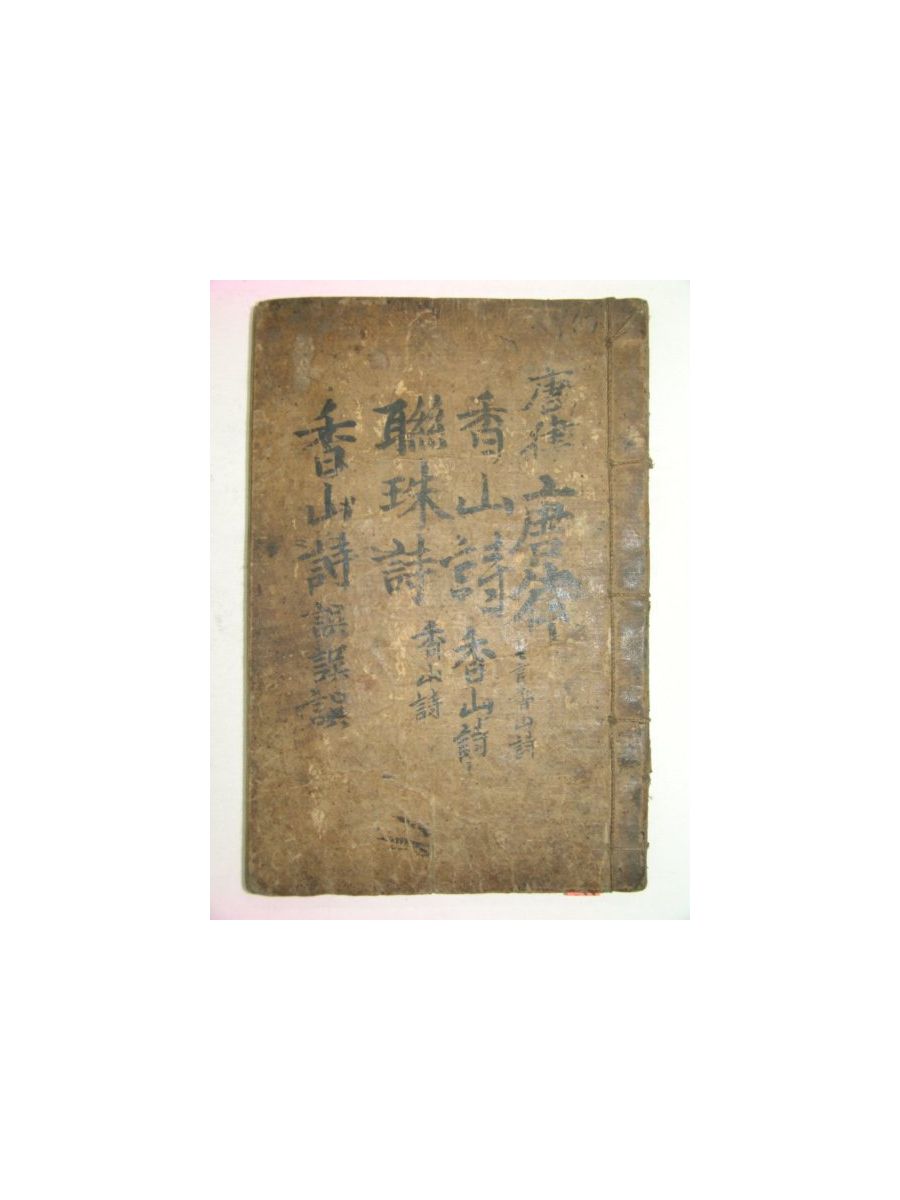 唐律 唐律
七言香山詩
香山詩 香山詩
聯珠詩 香山詩
香山詩 誤誤誤